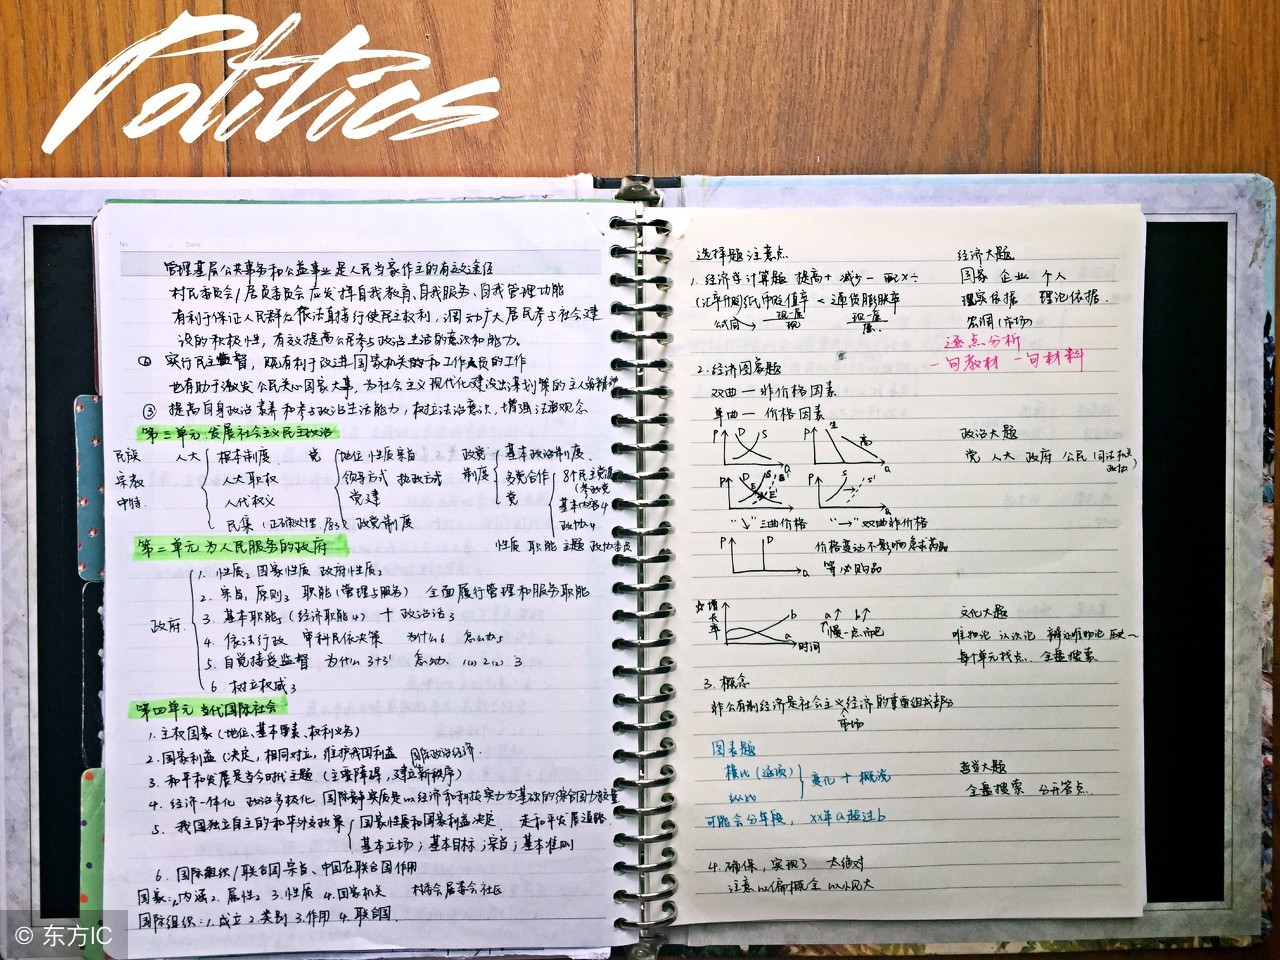 Politics
No
Date
管理基层公共事务和公益事业是人民当家作主的有效途径
村民委员会/居民委员会应发挥自我教育、自我服务、自我管理功能
有利于保证人民群众依法直接行使民主权利，调动广大居民参与社会建
设的积极性，有效提高公民参与政治生活的意识和能力。
② 实行民主监督，既有利于改进国家机关的和工作人员的工作
也有助于激发公民关心国家大事，为社会主义现代化建设出谋划策的主人翁精神
③ 提高自身政治素养和参与政治生活能力，树立法治意识，增强法治观念
第三单元 发展社会主义民主政治
民族
宗教
人大 根本制度
人大职权
人代权义
民集
党 地位 性质 宗旨
领导方式 执政方式
党建
政党制度
政党
制度 基本政治制度
多党合作
党
8个民主党派
(参政党
基本内容4
政协4
性质 职能 主题
第二单元 为人民服务的政府
政府
1. 性质2 国家性质 政府性质2
2. 宗旨1 原则3 职能(管理与服务) 全面履行管理和服务职能
3. 基本职能1 (经济职能4) + 政治法3
4. 依法行政 审科民依决策 为什么6 怎么办5
5. 自觉接受监督 为什么 3+3' 怎办 (1)2(2)3
6. 树立权威3
第四单元 当代国际社会
1. 主权国家(地位、基本要素、权利义务)
2. 国家利益(决定，相同对立，维护我国利益
3. 和平和发展是当今时代主题 (主要障碍，建立新秩序)
4. 经济一体化 政治多极化 国际竞争实质是以经济和科技实力为基础的综合国力较量
5. 我国独立自主的和平外交政策 国家性质和国家利益决定 走和平发展道路
基本立场；基本目标；宗旨；基本准则
6. 国际组织/联合国宗旨、中国在联合国作用
国家：1.内涵 2. 属性2 3. 性质 4. 国家机关 村委会居委会社区
国际组织：1. 成立 2. 类别 3. 作用 4. 联合国
选择题注意点
1. 经济学计算题 提高+ 减少- 配x÷
(汇率升)则纸币贬值率 < 通货膨胀率
公式同→ 现-原
现
现-原
原
2. 经济图象题
双曲—非价格因素
单曲—价格因素
P D S Q
P 生 高 Q
P D S S' E E' Q
P S S' Q
"↓"三曲价格 "→"双曲非价格
P D Q
价格变动不影响需求商品
等必需品
增
长
率
b
a
时间
a↑ b↑
慢一点而已
3. 概念
非公有制经济是社会主义经济的重要组成部分
市场
图表题
横比(逐项)
纵比
变化 + 概况
可能会分年段，xx年a超过b
4. 确保，实现了 太绝对
注意以偏概全 以小见大
经济大题
国家 企业 个人
现实依据 理论依据
宏调(市场)
逐点分析
一句教材 一句材料
政治大题
党 人大 政府 公民 (司法机关
政协)
文化大题
唯物论 认识论 辩证唯物论 历史~
每个单元找点 全盘搜索
哲学大题
全盘搜索 分开答点
© 东方IC